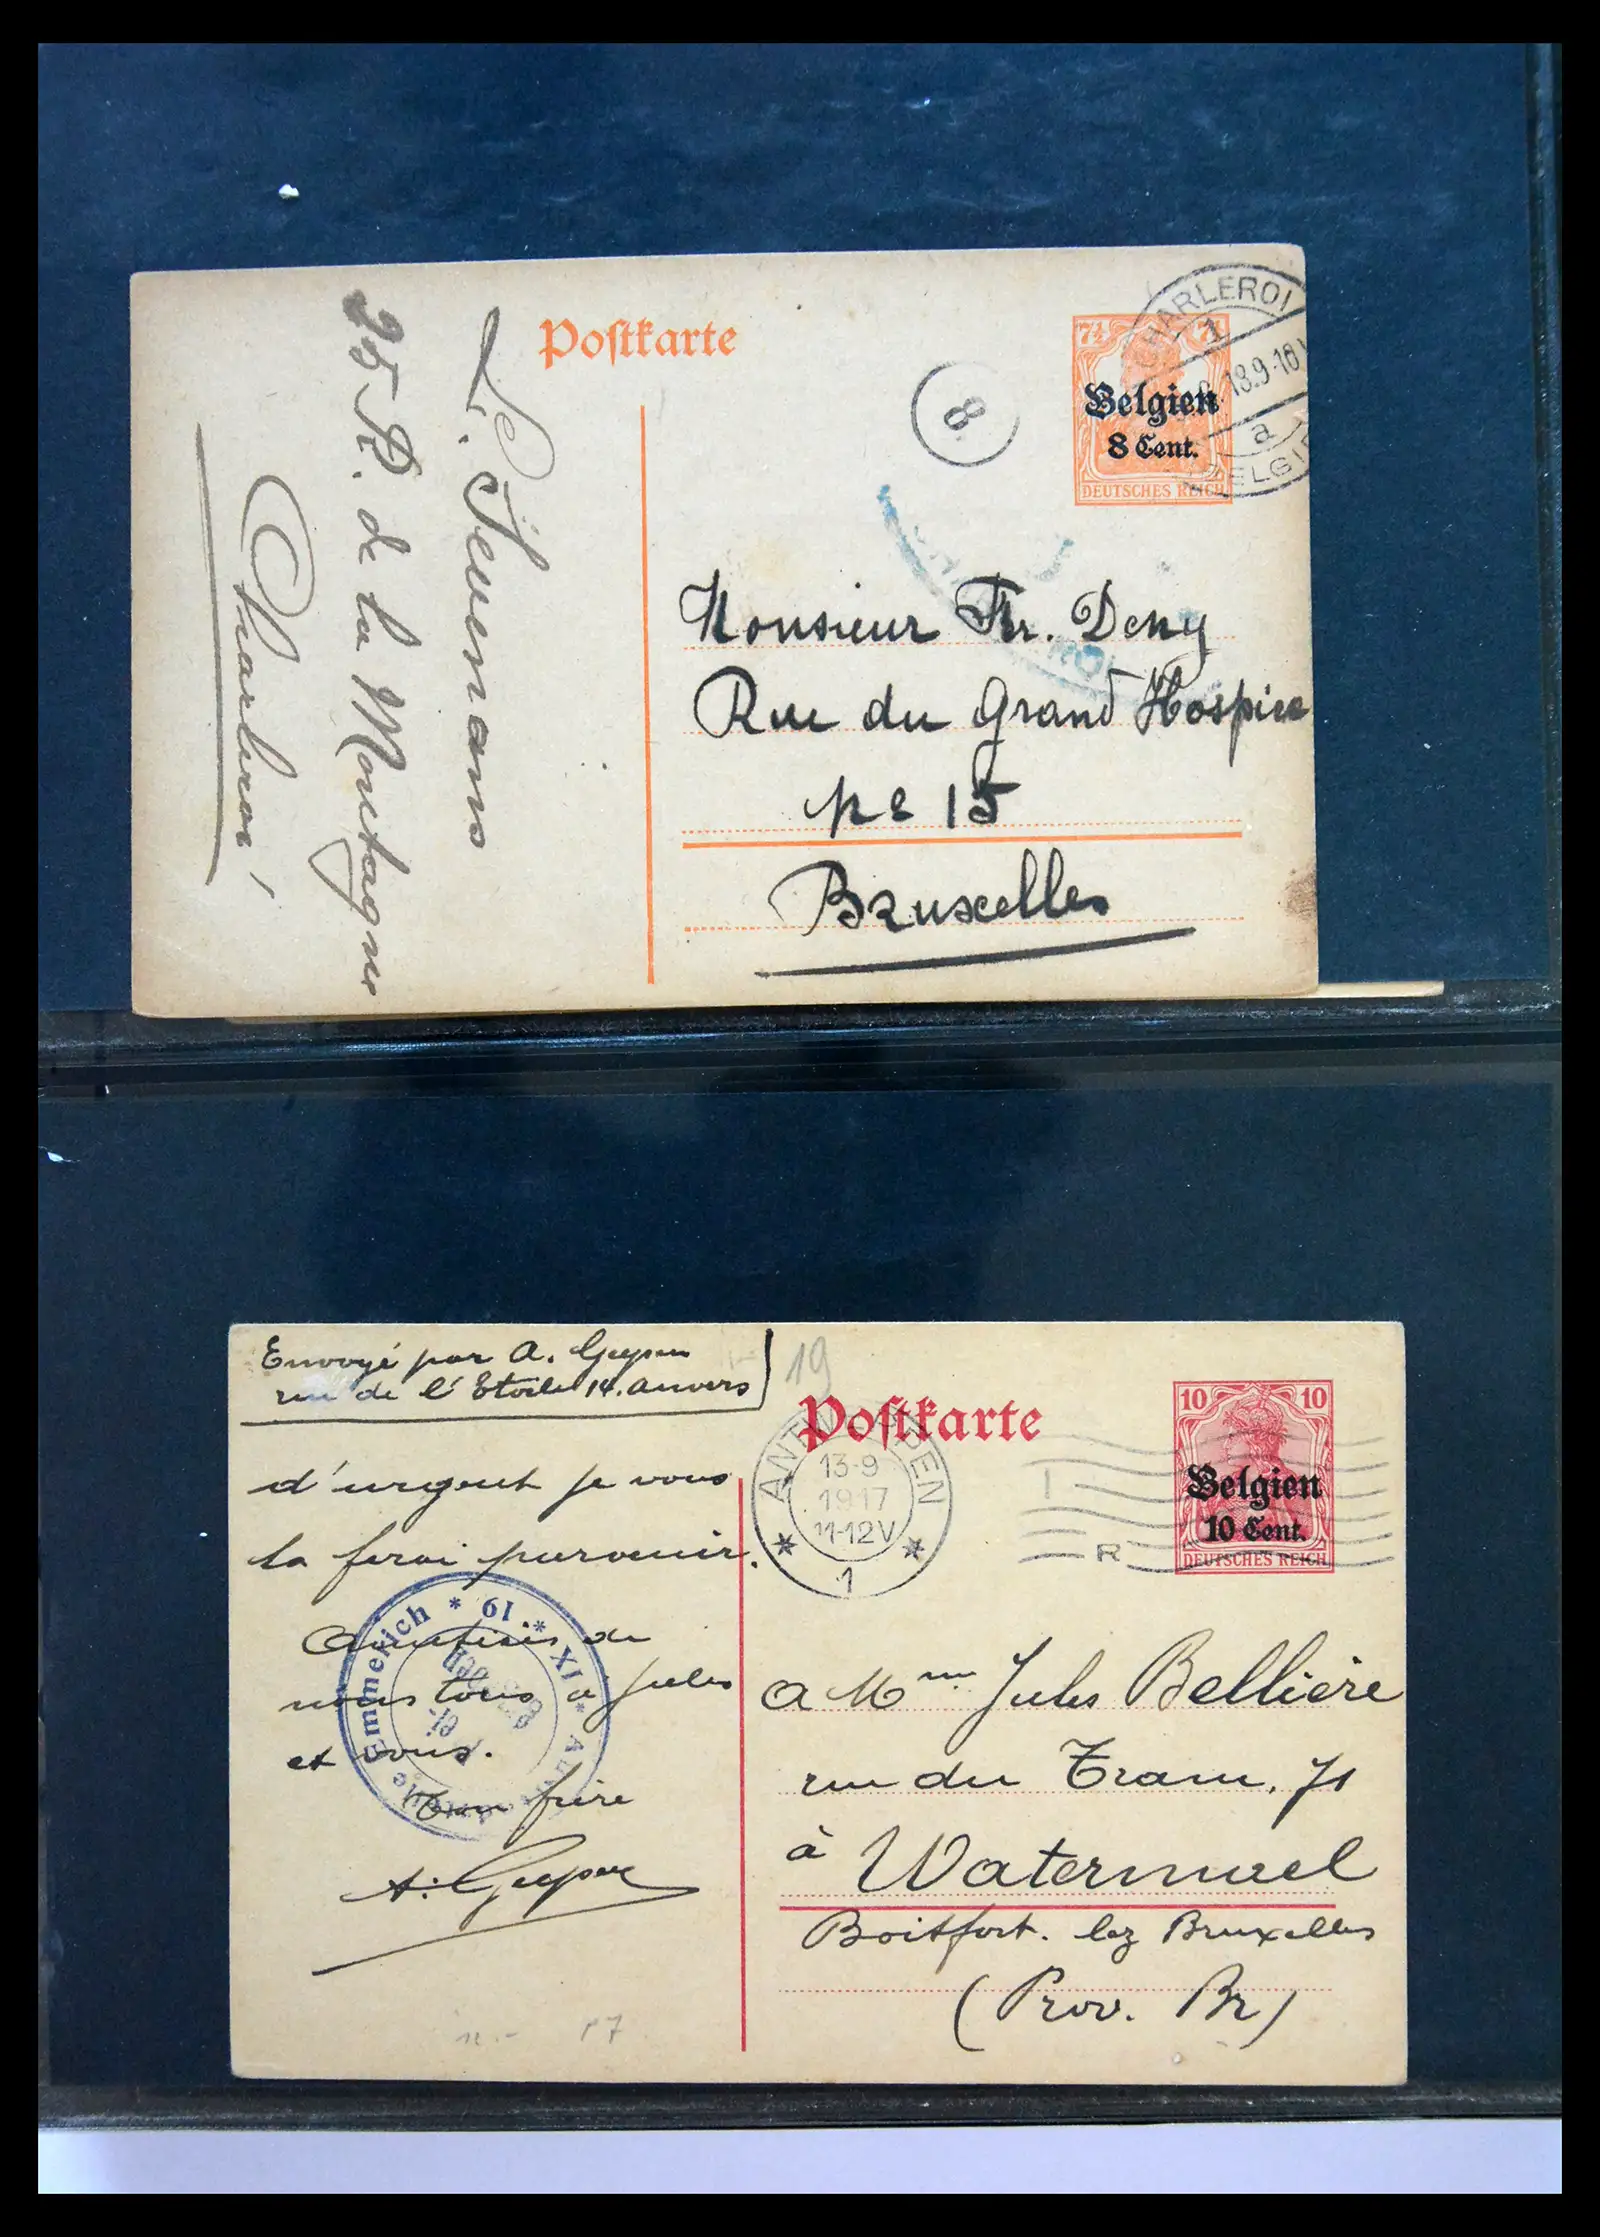 Postkarte
7½ 7½
Belgien
8 Cent.
DEUTSCHES REICH
CHARLEROI
1
18.9-10V
a
BELGIEN
8.
L. Seumans
25 R. de la Montagne
Charleroi
Monsieur Fr. Deny
Rue du Grand Hospice
No 15
Bruxelles
Envoyé par A. Geysen
rue de l'Etoile 14. Anvers
19
Postkarte
10 10
Belgien
10 Cent.
DEUTSCHES REICH
ANTWERPEN
13-9
1917
11-12V
* 1 *
R
d'urgent je vous
la ferai parvenir.
Amitiés de
nous tous a Jules
et vous.
Ton frère
A. Geysen
Emmerich * 19 * XI *
a Mme Jules Bellière
rue du Tram, 71
à Watermael
Boitsfort. lez Bruxelles
(Prov. Br)